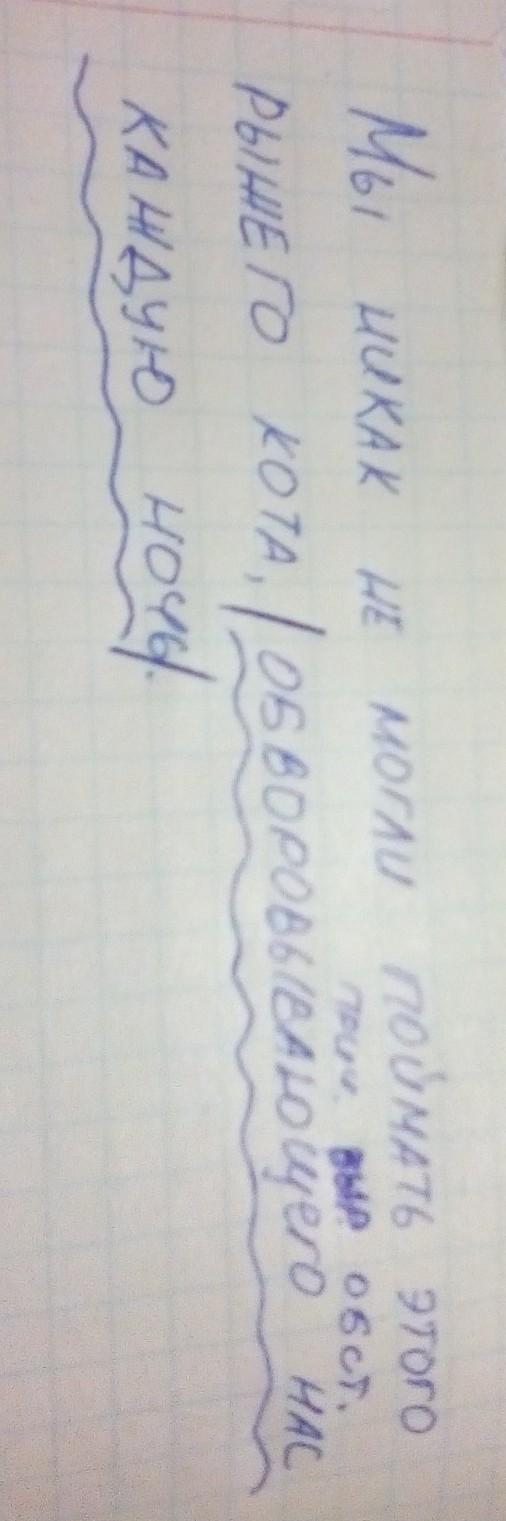 Мы никак не могли поймать этого
прич. выр обст.
рыжего кота, | обворовывающего нас
каждую ночь|.